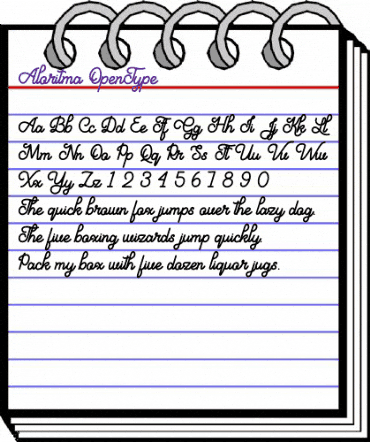 Aloritma OpenType
Aa Bb Cc Dd Ee Ff Gg Hh Ii Jj Kk Ll
Mm Nn Oo Pp Qq Rr Ss Tt Uu Vv Ww
Xx Yy Zz 1 2 3 4 5 6 7 8 9 0
The quick brown fox jumps over the lazy dog.
The five boxing wizards jump quickly.
Pack my box with five dozen liquor jugs.